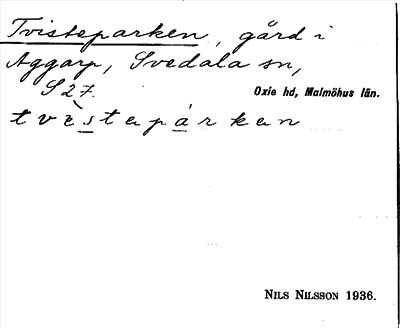 Tvisteparken, gård i
Aggarp, Svedala sn,
S 27. Oxie hd, Malmöhus län.
tvès̲tepa̲rken
NILS NILSSON 1936.